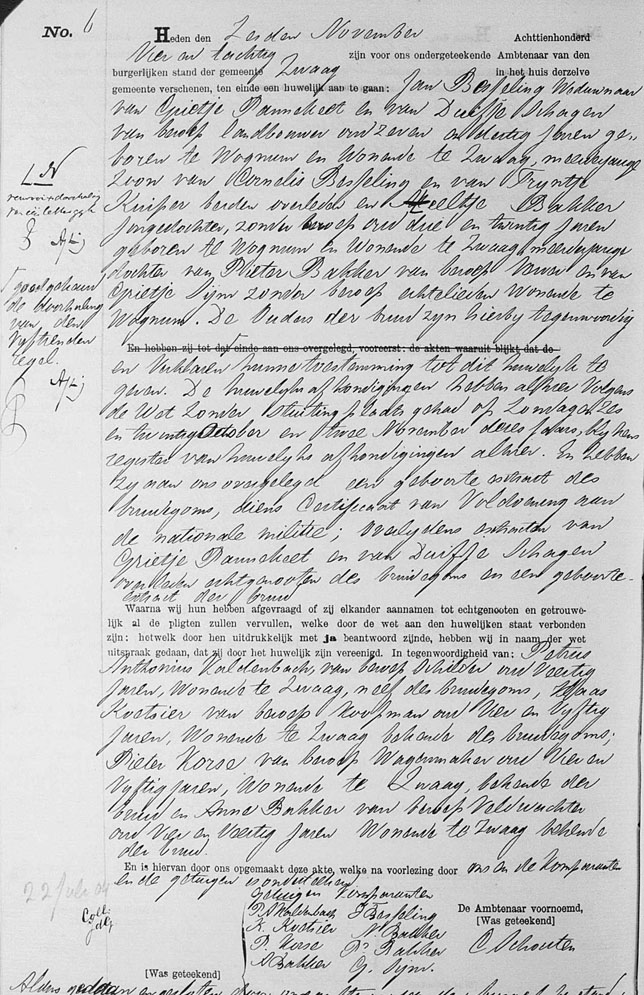 No. 6
Heden den Zesden November Achttienhonderd
Vier en tachtig zijn voor ons ondergeteekende Ambtenaar van den
burgerlijken stand der gemeente Zwaag in het huis derzelve
gemeente verschenen, ten einde een huwelijk aan te gaan: Jan Besseling Weduwnaar
van Grietje Pannekeet en van Duifje Schagen
van beroep landbouwer oud zeven en dertig Jaren ge-
boren te Wognum en Wonende te Zwaag, meerderjarige
Zoon van Cornelis Besseling en van Tryntje
Kuiper beiden overleden en Neeltje Bakker
Jongedochter, zonder beroep oud drie en twintig Jaren
geboren te Wognum en Wonende te Zwaag, meerderjarige
dochter van Pieter Bakker van beroep en van
Grietje Sijm zonder beroep echtelieden Wonende te
Wognum. De Ouders der bruid zyn hierby tegenwoordig
En hebben zij tot dat einde aan ons overgelegd, vooreerst: de akten waaruit blijkt dat de
en Verklaren hunne toestemming tot dit huwelyk te
geven. De huwelyks afkondigingen hebben alhier Volgens
de Wet zonder Stuiting plaats gehad op Zondagen Zes
en twintig October en twee November dezes Jaars, blykens
register van huwelyks afkondigingen alhier. En hebben
zy aan ons overgelegd een geboorte extract des
bruidegoms, diens Certificaat van Voldoening aan
de nationale militie; Overlydens extracten van
Grietje Pannekeet en van Duifje Schagen
overleden echtgenooten des bruidegoms en een geboorte-
extract der bruid
Waarna wij hun hebben afgevraagd of zij elkander aannamen tot echtgenooten en getrouwe-
lijk al de pligten zullen vervullen, welke door de wet aan den huwelijken staat verbonden
zijn: hetwelk door hen uitdrukkelijk met ja beantwoord zijnde, hebben wij in naam der wet
uitspraak gedaan, dat zij door het huwelijk zijn vereenigd. In tegenwoordigheid van: Petrus
Anthonius Kaldenbach, van beroep Schilder oud Veertig
Jaren, Wonende te Zwaag, neef des bruidegoms, Klaas
Koetsier van beroep Koopman oud Vier en Vyftig
Jaren, Wonende te Zwaag bekende des bruidegoms;
Pieter Korse van beroep Wagenmaker oud Vier en
Vyftig Jaren, Wonende te Zwaag, bekende der
bruid en Anne Bakker van beroep Veldwachter
oud Vier en Veertig Jaren Wonende te Zwaag bekende
der bruid.
En is hiervan door ons opgemaakt deze akte, welke na voorlezing door ons en de komparanten
en de getuigen is onderteekend
Getuigen Komparanten
P. A Kaldenbach J Besseling
K. Koetsier N Bakker
P. Korse P. Bakker
A Bakker G. Sijm.
De Ambtenaar voornoemd,
[Was geteekend]
C Schouten
[Was geteekend]
goedgekeurd
de doorhaling
van den
Vyftienden
regel.
22 Juli
Coll: